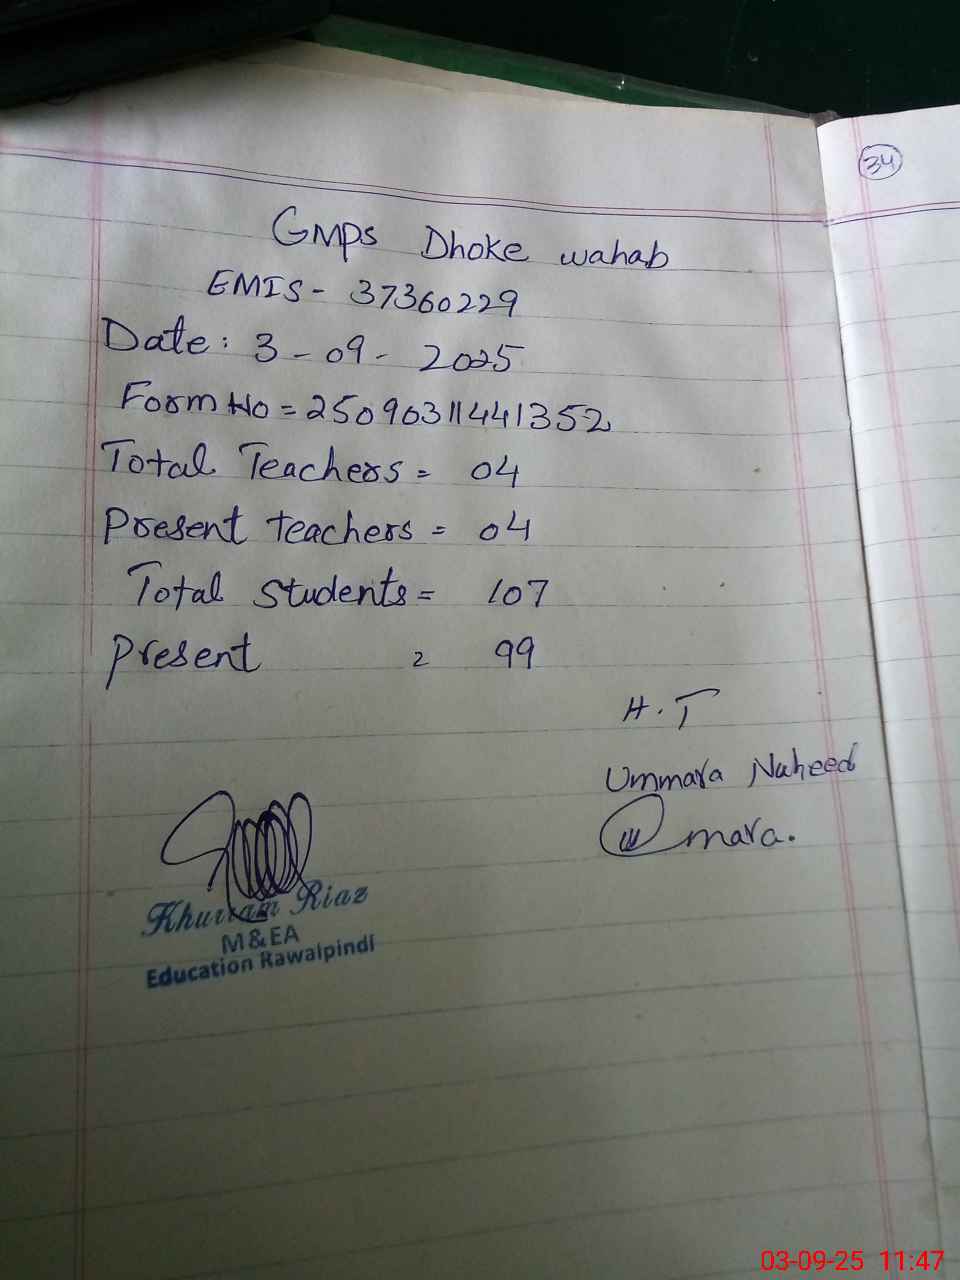 34
GMPS Dhoke wahab
EMIS - 37360229
Date: 3 - 09 - 2025
Form No = 25090311441352
Total Teachers = 04
Present teachers = 04
Total Students = 107
Present = 99
H.T
Ummara Naheed
Ummara.
Khurram Riaz
M&EA
Education Rawalpindi
03-09-25 11:47